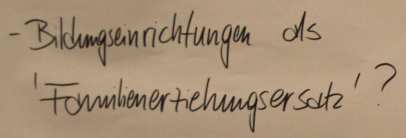 - Bildungseinrichtungen als
'Familienerziehungsersatz'?